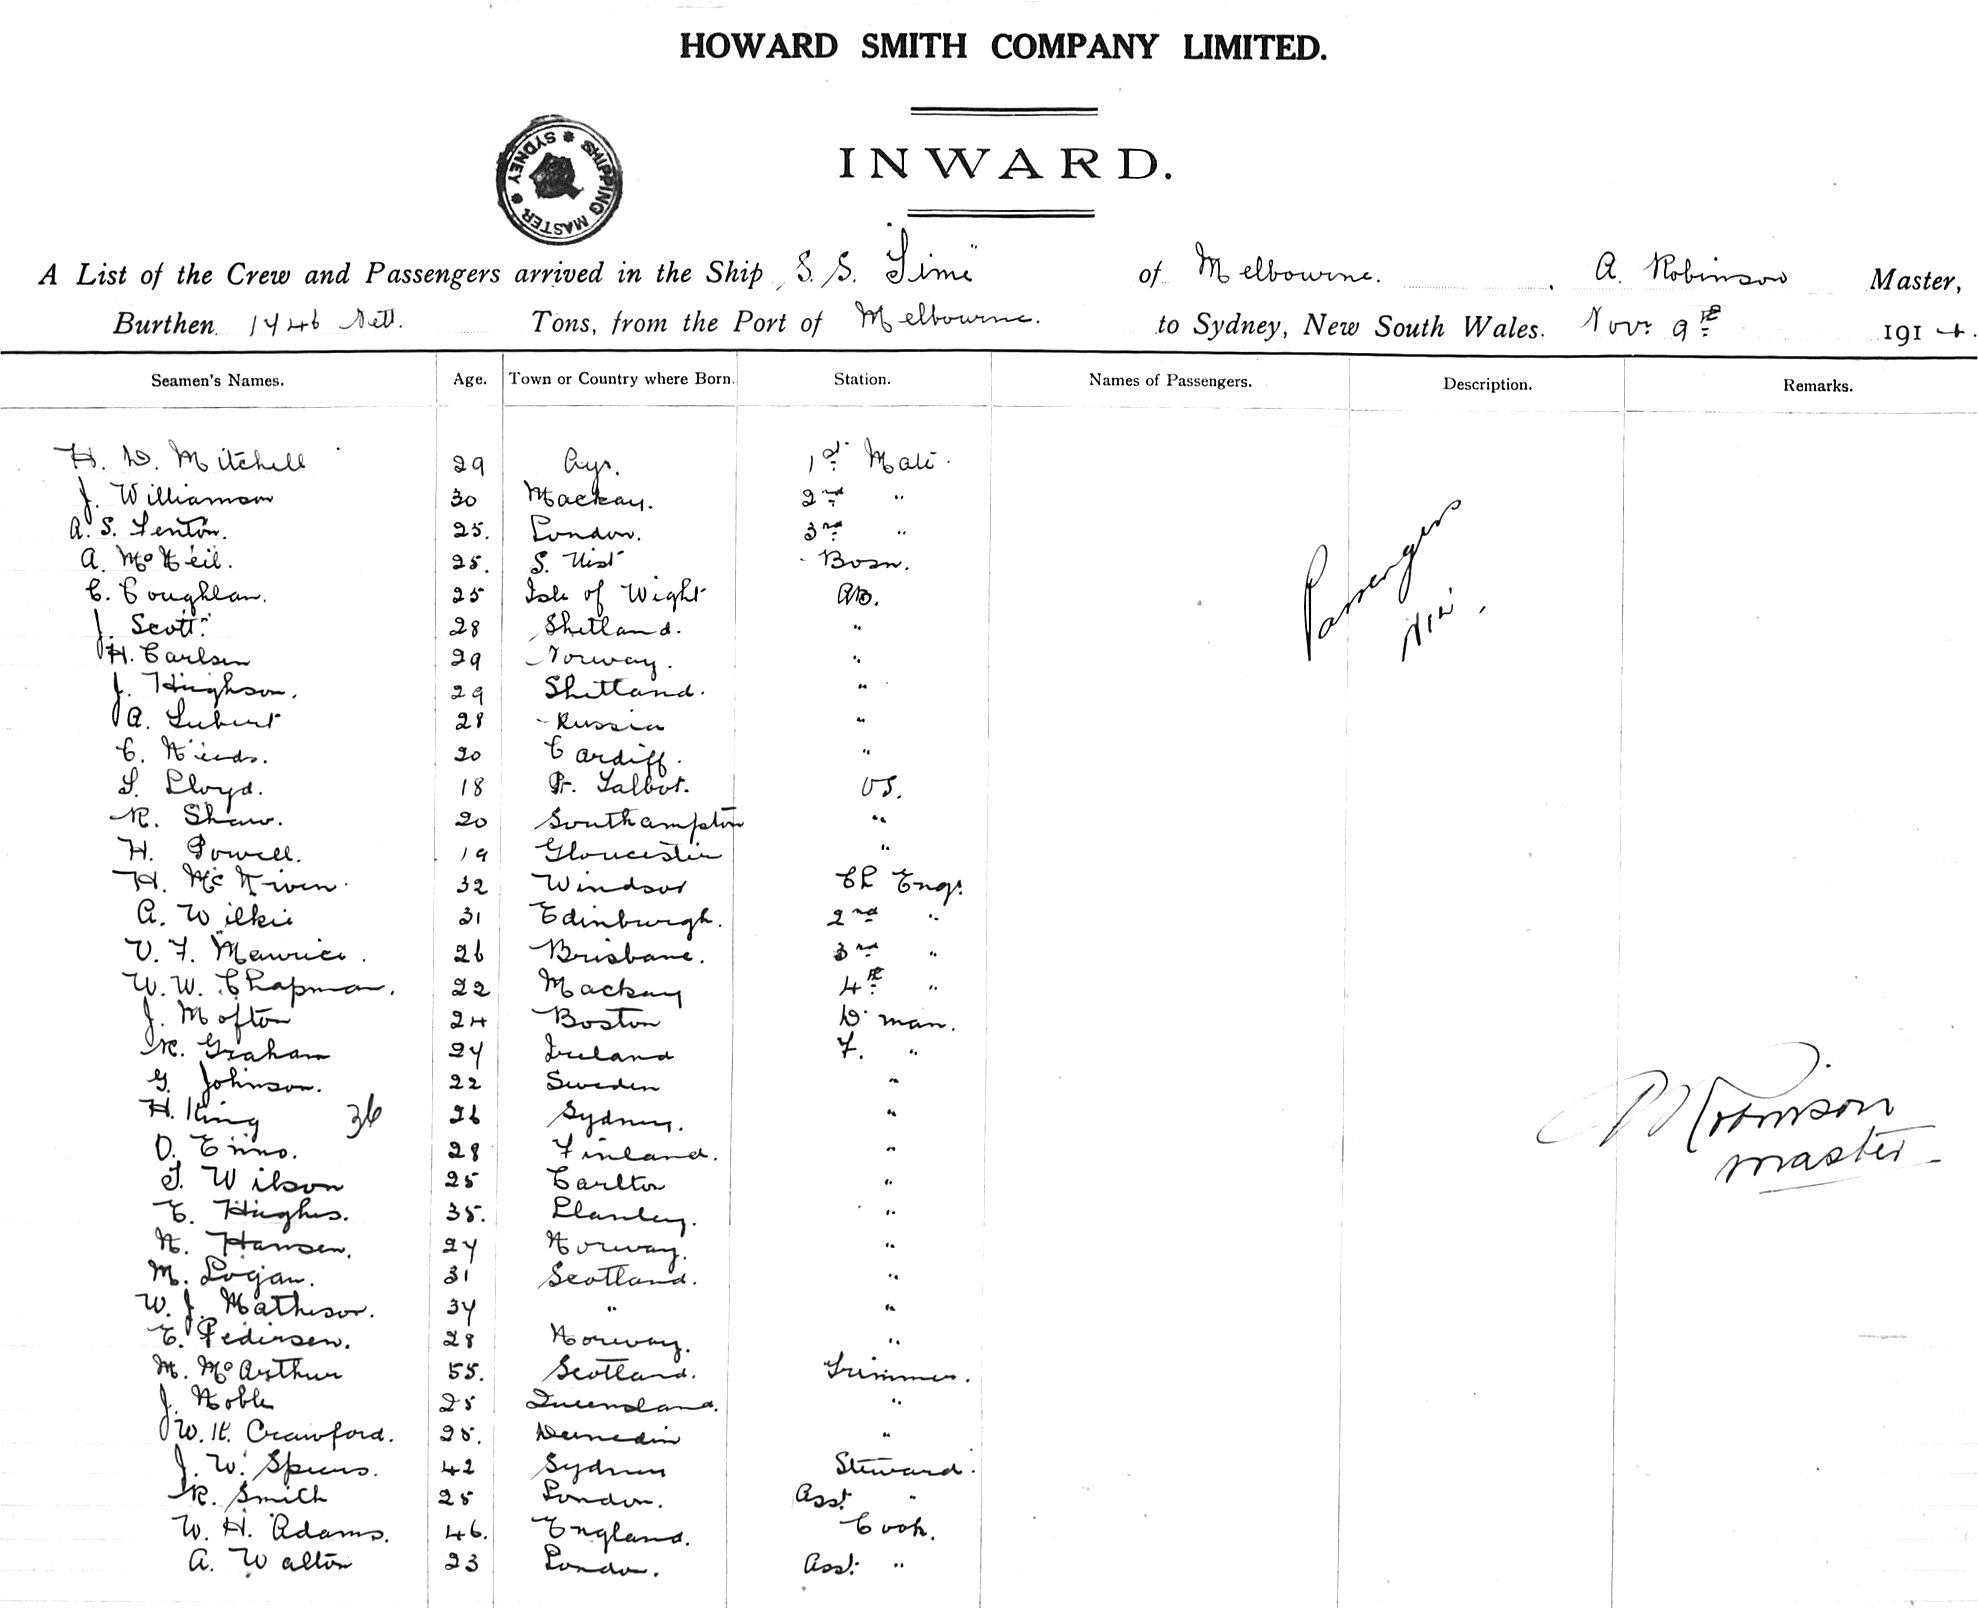 HOWARD SMITH COMPANY LIMITED.
INWARD.
SHIPPING MASTER * SYDNEY *
A List of the Crew and Passengers arrived in the Ship S.S. "Time" of Melbourne. A. Robinson Master,
Burthen 1746 Nett. Tons, from the Port of Melbourne. to Sydney, New South Wales. Nov: 9th 1914.
Seamen's Names. Age. Town or Country where Born. Station. Names of Passengers. Description. Remarks.
H. D. Mitchell 29 Ayr. 1st Mate.
J. Williamson 30 Mackay. 2nd "
A. S. Fenton. 25. London. 3rd "
A. McNeil. 25. S. Uist Bosn.
C. Coughlan. 25 Isle of Wight AB.
J. Scott. 28 Shetland. "
H. Carlsen 29 Norway. "
J. Hughson. 29 Shetland. "
A. Lubert 28 Russia "
C. Needs. 20 Cardiff. "
S. Lloyd. 18 Pt. Talbot. OS.
R. Shaw. 20 Southampton "
H. Powell. 19 Gloucester "
H. McNiven. 32 Windsor Ch Engr.
A. Wilkie 31 Edinburgh. 2nd "
V. F. Maurice. 26 Brisbane. 3rd "
W. W. Chapman. 22 Mackay 4th "
J. Mofton 24 Boston D. man.
R. Graham 27 Ireland F. "
G. Johnson. 22 Sweden "
H. King 36 26 Sydney. "
O. Erino. 28 Finland. "
T. Wilson 25 Carlton "
E. Hughes. 35. "
N. Hansen. 27 Norway. "
M. Logan. 31 Scotland. "
W. J. Matheson. 37 " "
E. Pedersen. 28 Norway. "
M. McArthur 55. Scotland. Trimmer.
J. Noble 25 Queensland. "
W. K. Crawford. 25. Dunedin "
J. W. Spiers. 42 Sydney Steward.
R. Smith 25 London. Asst. "
W. H. Adams. 46. England. Cook.
A. Walton 23 London. Asst: "
Passengers
Nil.
A Robinson
Master